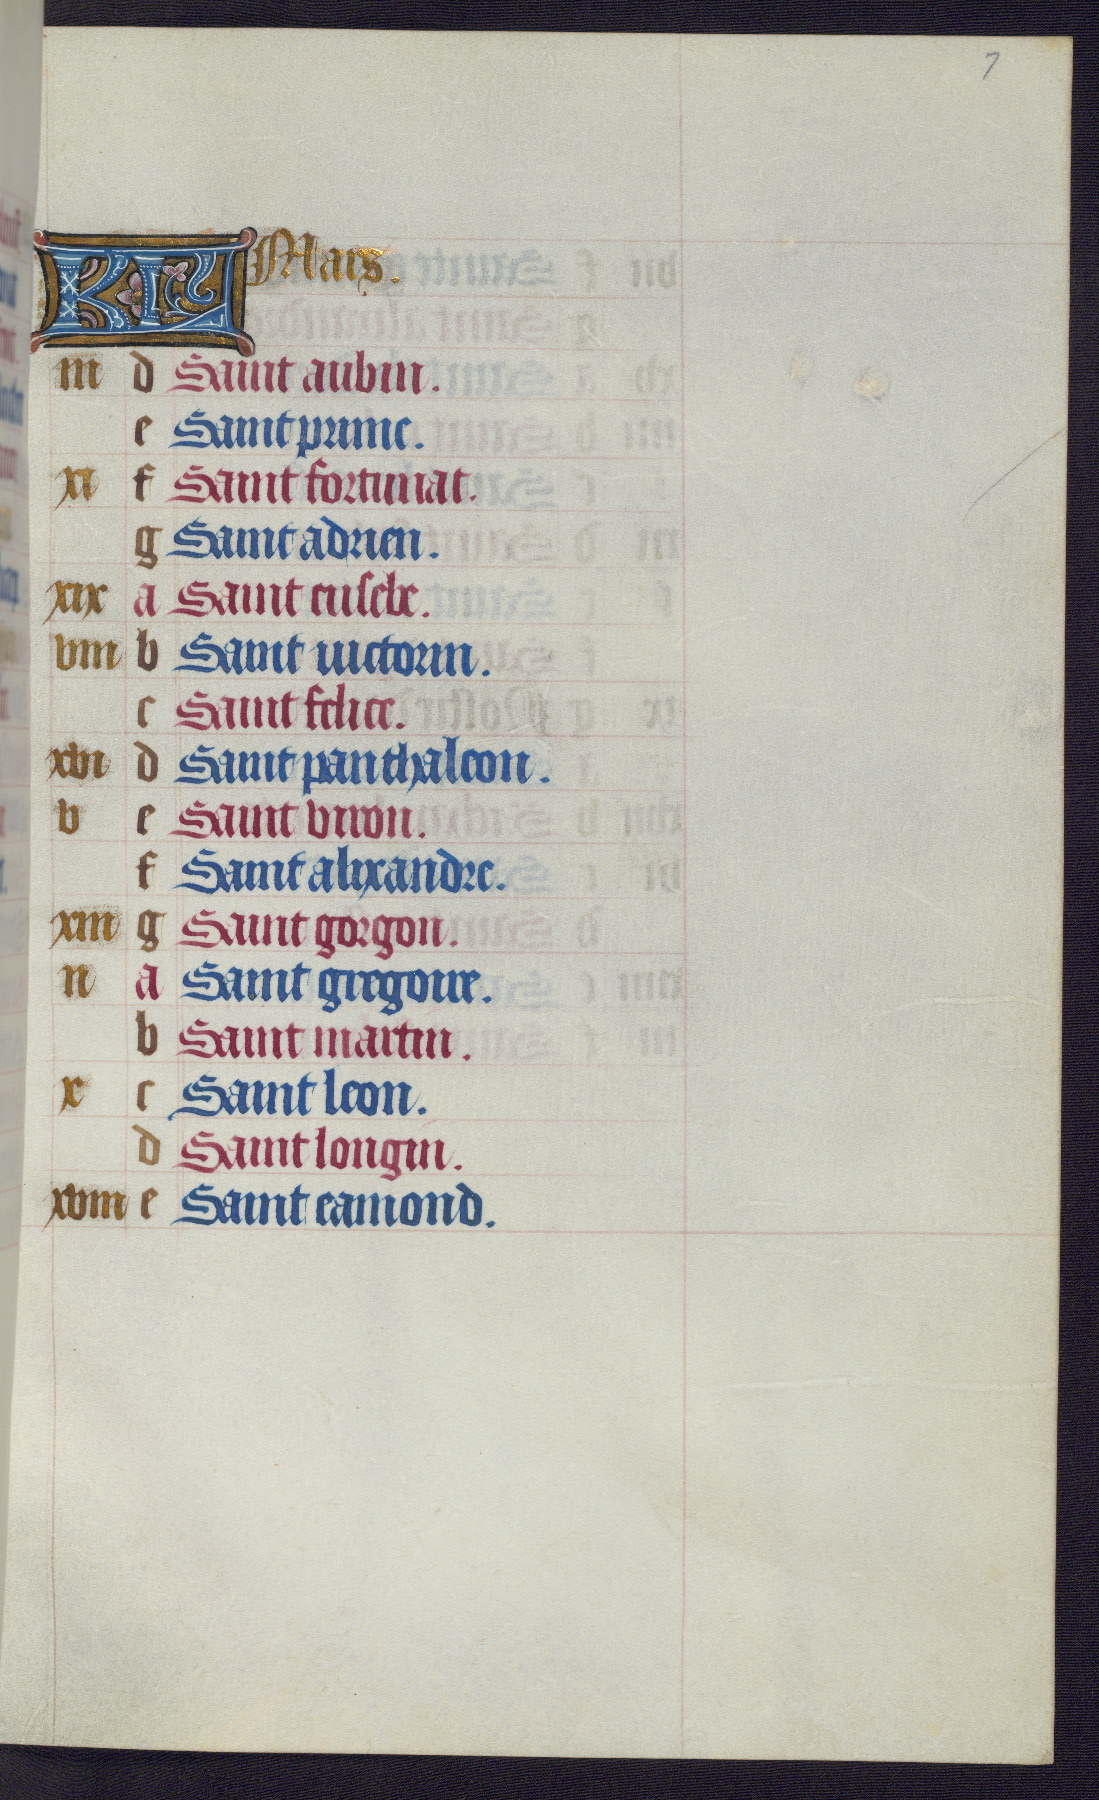 7
KL Mars.
iii d Saint aubin.
e Saint prime.
xi f Saint fortunat.
g Saint adrien.
xix a Saint eusebe.
viii b Saint victorin.
c Saint felice.
xvi d Saint panthaleon.
v e Saint viron.
f Saint alixandre.
xiii g Saint gorgon.
ii a Saint gregoire.
b Saint martin.
x c Saint leon.
d Saint longin.
xviii e Saint eamond.